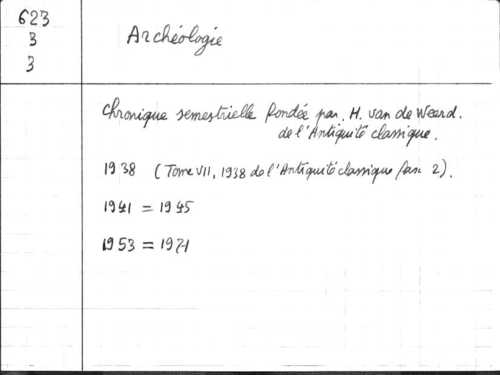 623
3
3
Archéologie
Chronique semestrielle fondée par H. van de Weerd.
de l'Antiquité classique.
1938 (Tome VII, 1938 de l'Antiquité classique fasc 2).
1941 = 1945
1953 = 1971